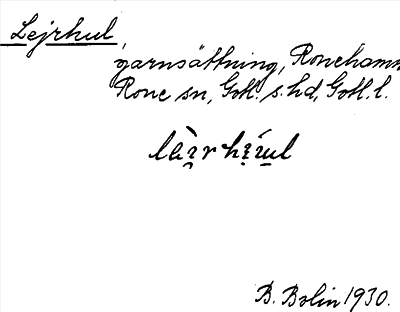 Lejrhul,
garnsättning, Ronehamn
Rone sn, Gotl. s. hd, Gotl. l.
B. Bolin 1930.